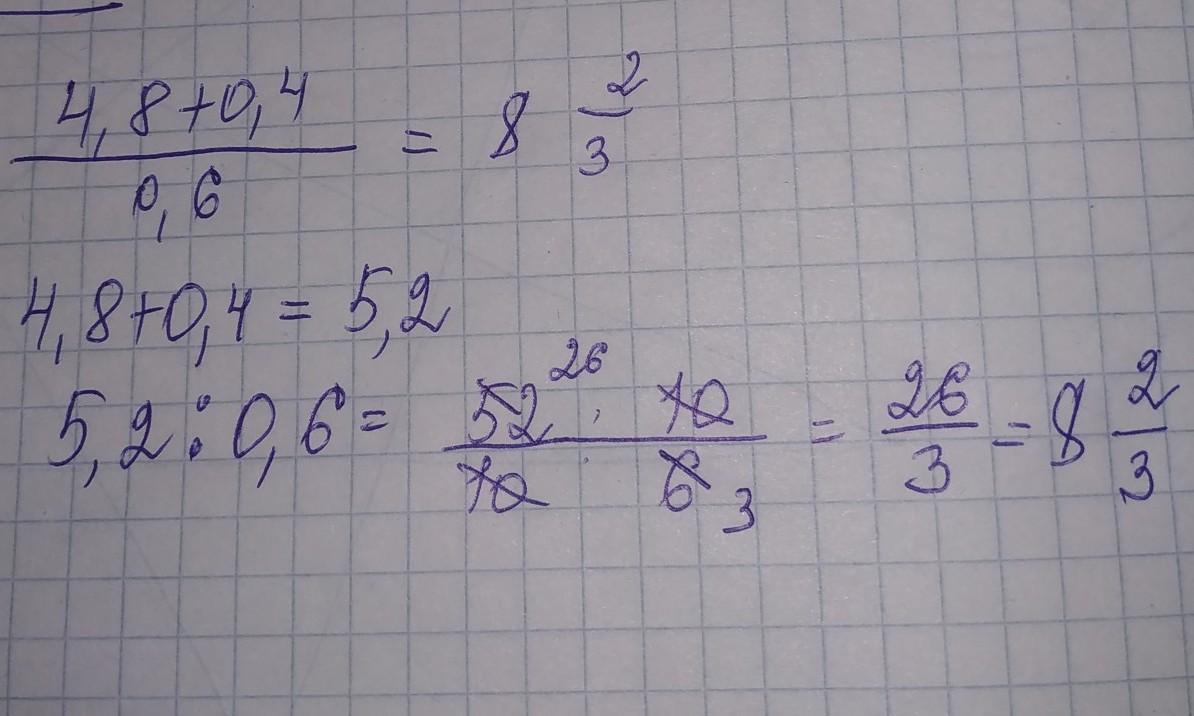 (4,8+0,4)/0,6 = 8 2/3
4,8+0,4 = 5,2
5,2:0,6 = (52 26 · 10)/(10 · 6 3) = 26/3 = 8 2/3